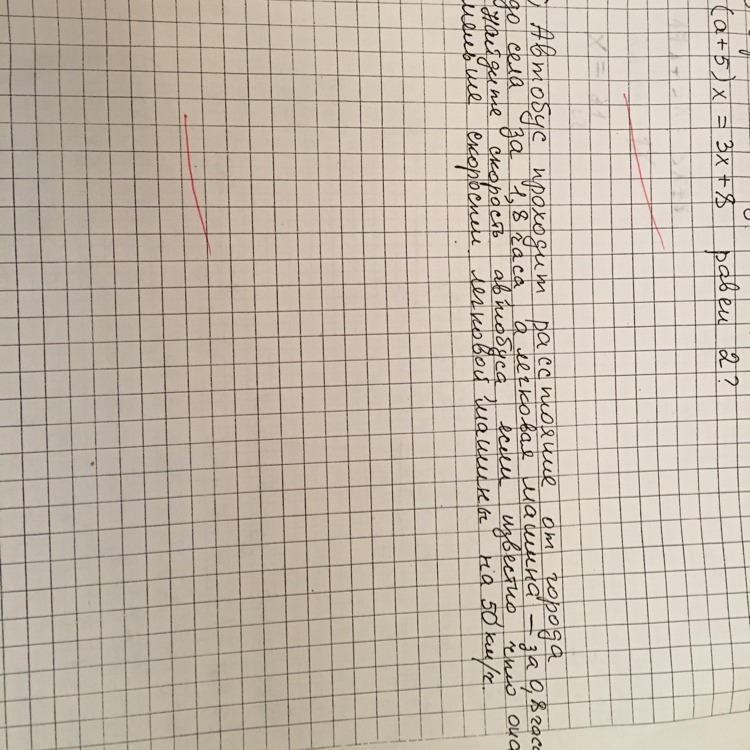 (a+5)x = 3x+8 равен 2?
) Автобус проходит расстояние от города
до села за 1,8 часа а легковая машина — за 0,8 часа
Найдите скорость автобуса, если известно что она
меньше скорости легковой машины на 50 км/ч.